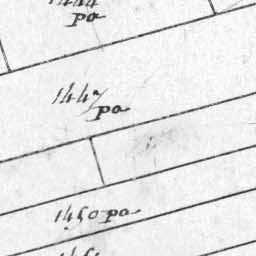 1444
pa
1447
pa
1450 pa